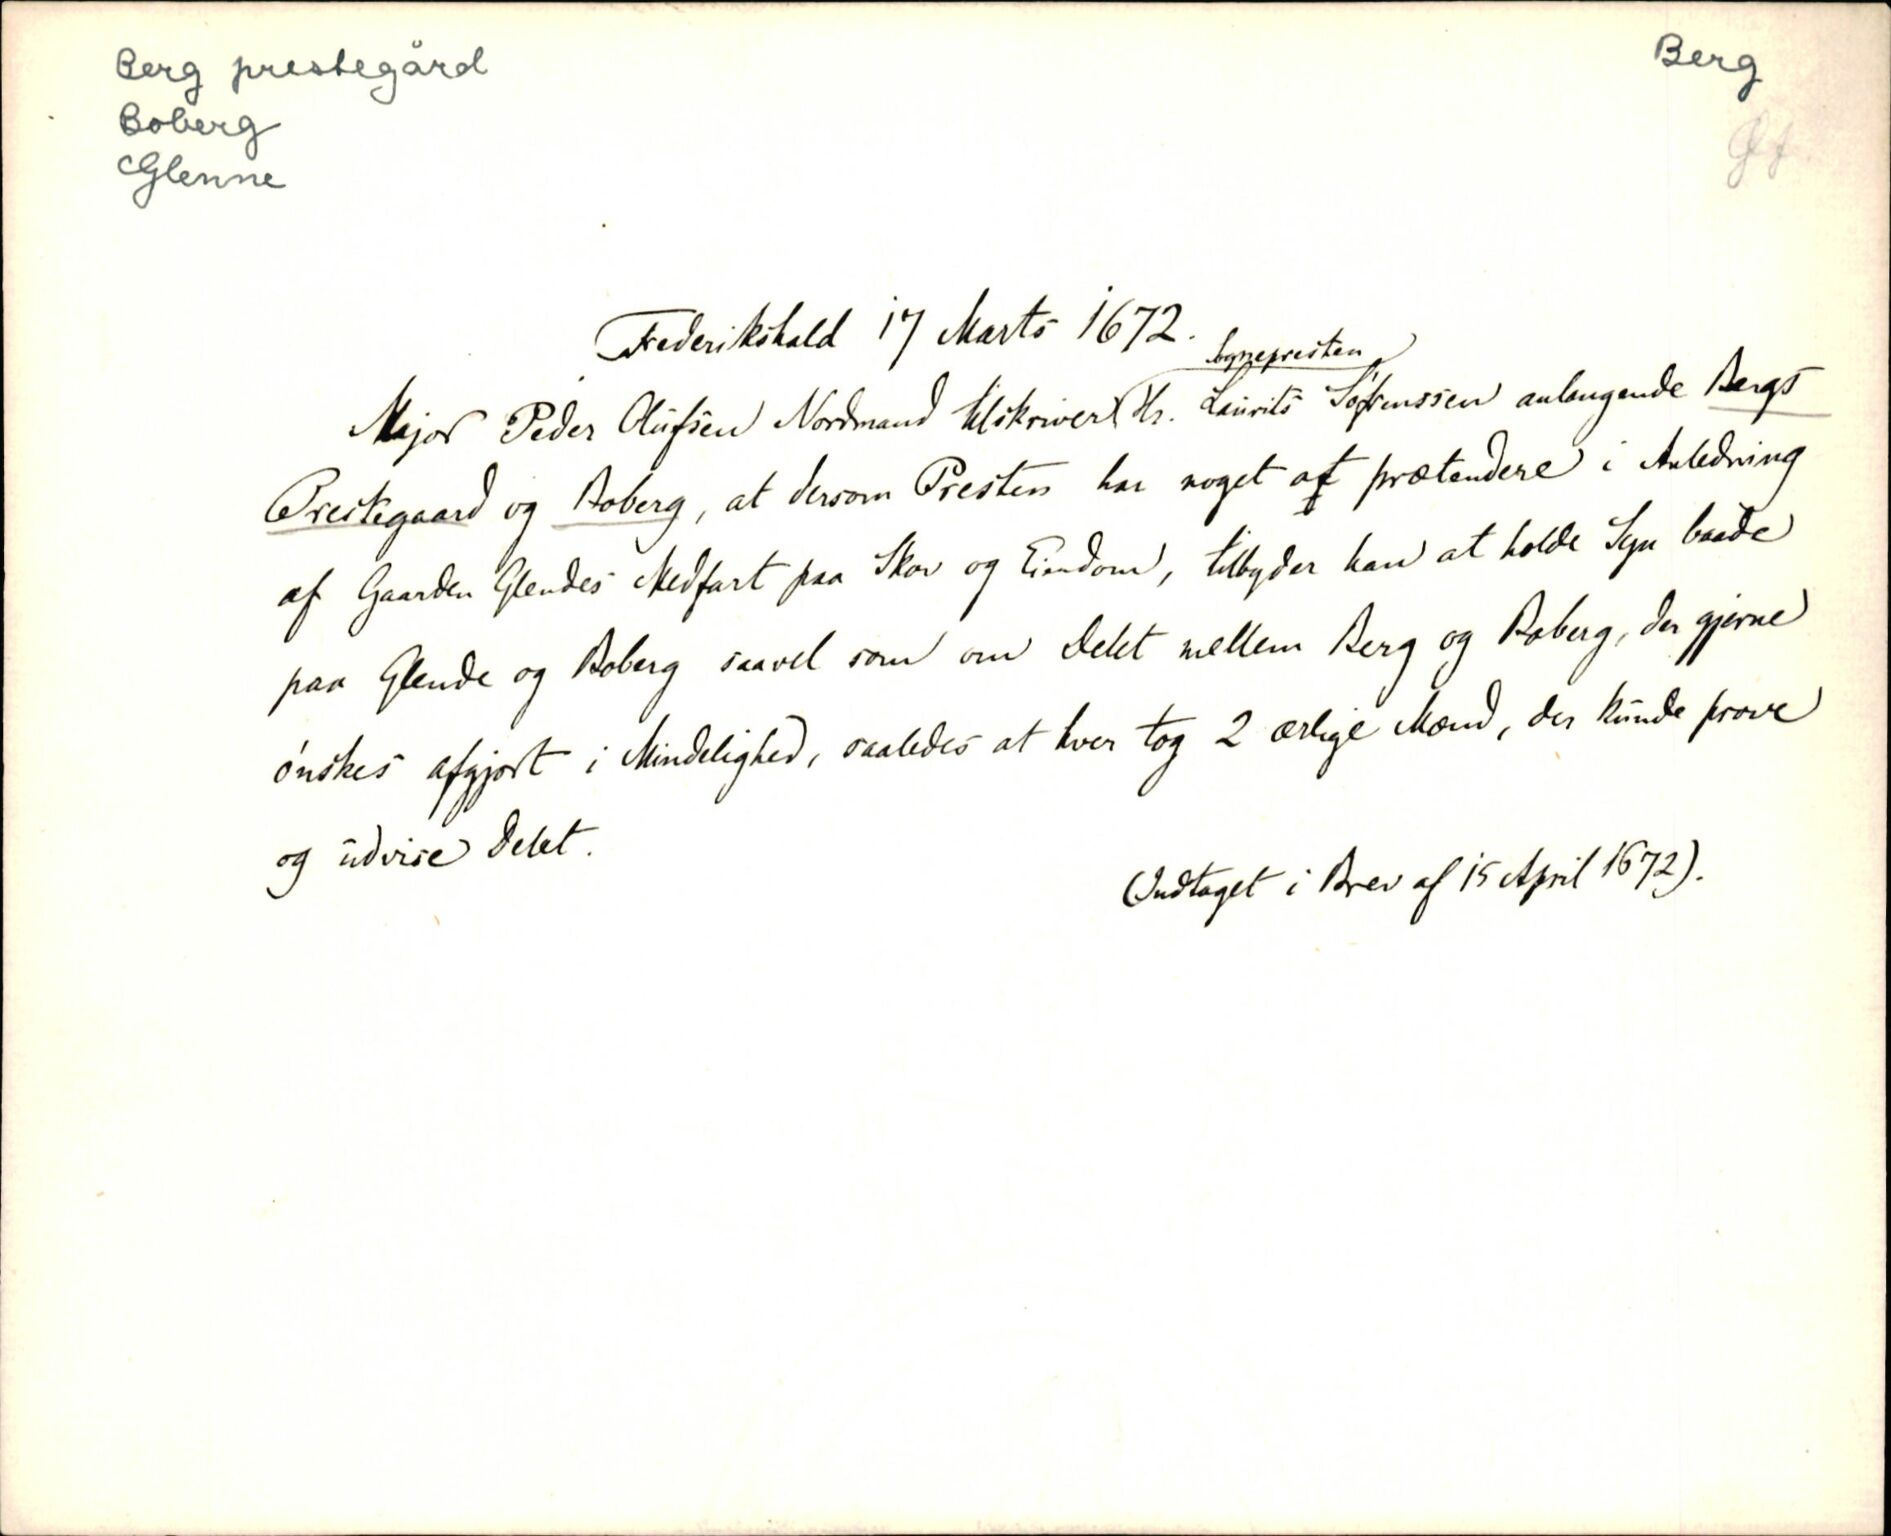 Berg prestegård
Boberg
Glenne
Berg
Øf.
Frederikshald 17 Marts 1672.
Sognepresten
Major Peder Olufsen Nordmand tilskriver Hr. Laurits Söfrenssen anlangende Bergs
Prestegaard og Boberg, at dersom Presten har noget at prætendere i Anledning
af Gaarden Glendes Medfart paa Skov og Eiendom, tilbyder han at holde Syn baade
paa Glende og Boberg saavel som om Delet mellem Berg og Boberg, der gjerne
önskes afgjort i Mindelighed, saaledes at hver tog 2 ærlige Mænd, der kunde prove
og udvise Delet.
(Indtaget i Brev af 15 April 1672).